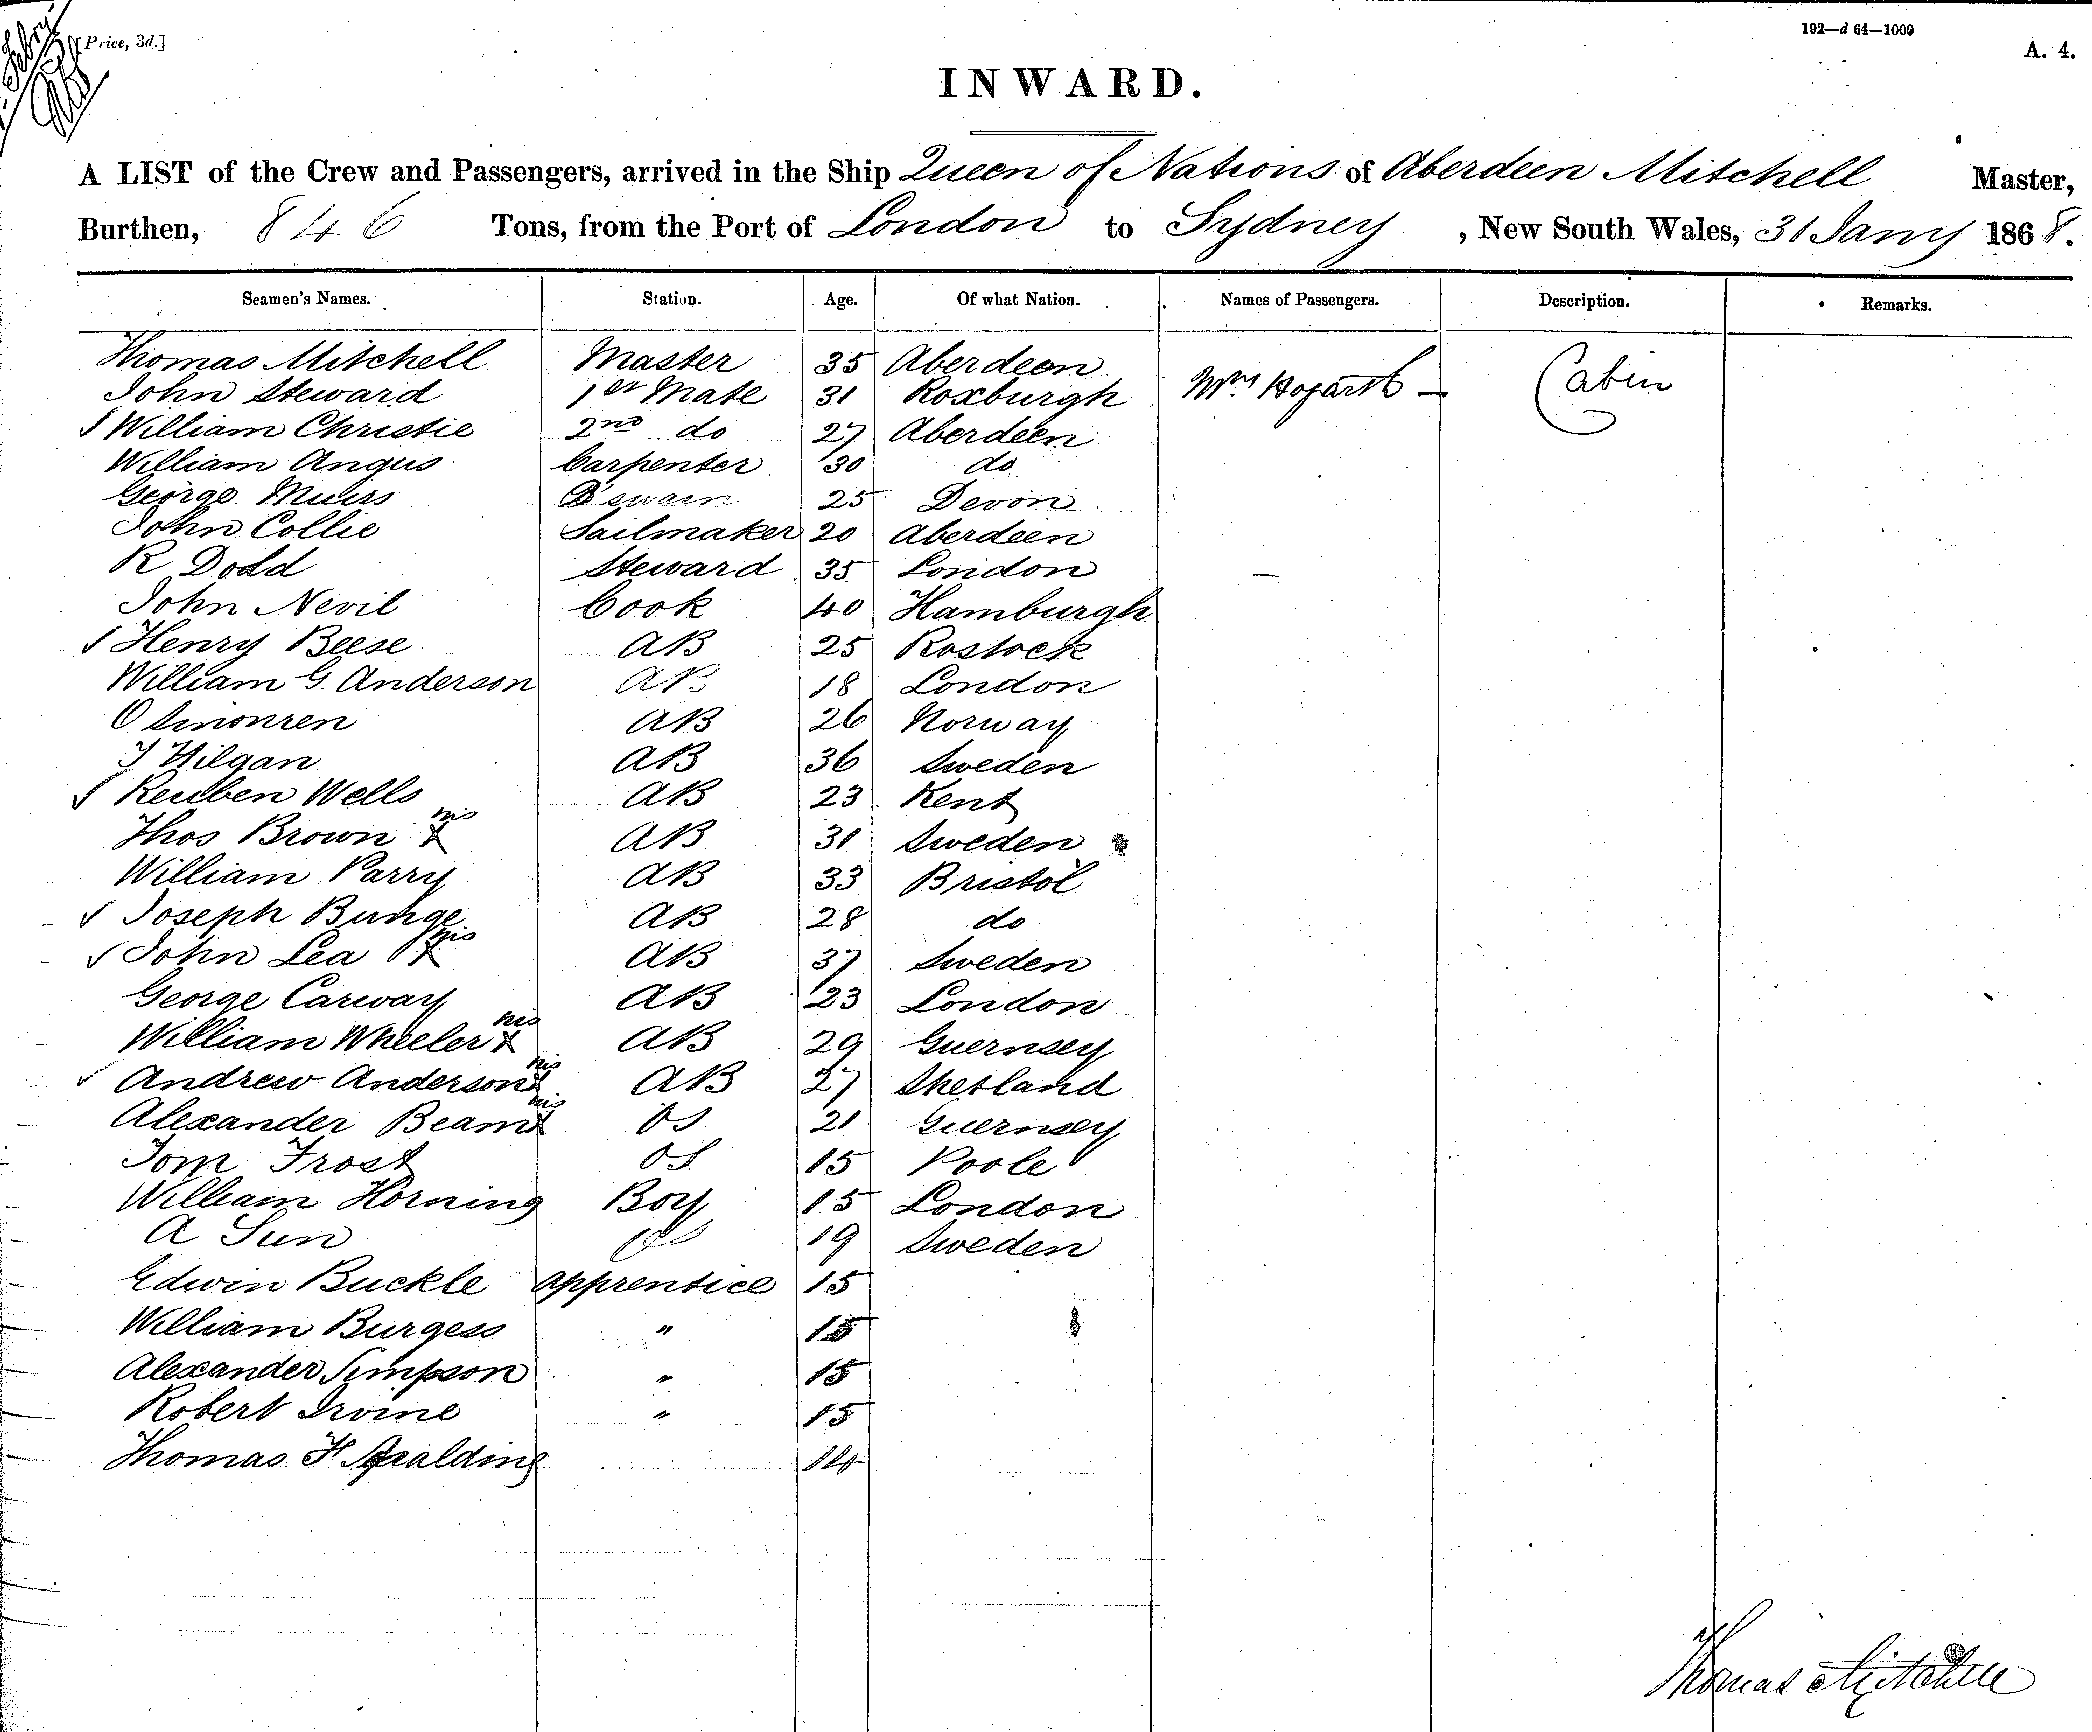 [Price, 3d.]
192—d 64—1000
A. 4.
INWARD.
A LIST of the Crew and Passengers, arrived in the Ship Queen of Nations of Aberdeen Mitchell Master,
Burthen, 846 Tons, from the Port of London to Sydney, New South Wales, 31 Jany 1868.
Seamen's Names. Station. Age. Of what Nation. Names of Passengers. Description. Remarks.
Thomas Mitchell Master 35 Aberdeen Mrs Hogarth — Cabin
John Steward 1st Mate 31 Roxburgh
William Christie 2nd do 27 Aberdeen
William Angus Carpenter 30 do
George Muers B'swain 25 Devon
John Collie Sailmaker 20 Aberdeen
R Dodd Steward 35 London
John Nevil Cook 40 Hamburgh
Henry Beese AB 25 Rostock
William G. Anderson AB 18 London
O Sinonren AB 26 Norway
AB 36 Sweden
Reuben Wells AB 23 Kent
Thos Brown his x AB 31 Sweden
William Parry AB 33 Bristol
Joseph Bunge AB 28 do
John Lea his x AB 37 Sweden
George Carway AB 23 London
William Wheeler his x AB 29 Guernsey
Andrew Anderson his x AB 27 Shetland
Alexander Beam his x OS 21 Guernsey
Tom Frost OS 15 Poole
William Horning Boy 15 London
A Sun OS 19 Sweden
Edwin Buckle apprentice 15
William Burgess " 15
Alexander Simpson " 15
Robert Irvine " 15
Thomas F Spalding 14
Thomas Mitchell